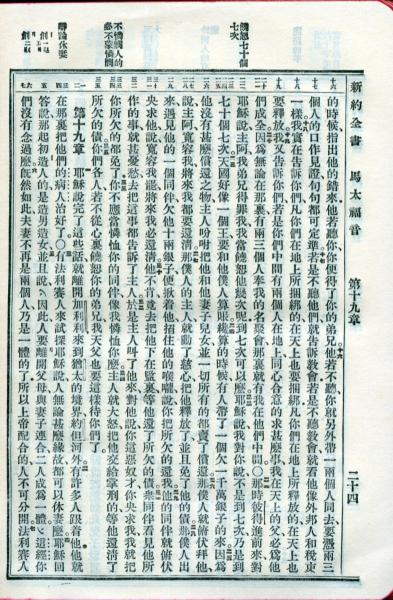 新約全書 馬太福音 第十九章 二十四
的時候指出他的錯來他若聽你你便得了你的弟兄他若不聽你就另外帶一兩個人同去要憑兩三
個人的口作見證句句都可定準若是不聽他們就告訴教會若是不聽教會就看他像外邦人和稅吏
一樣我實在告訴你們凡你們在地上所捆綁的在天上也要捆綁凡你們在地上所釋放的在天上也
要釋放我又告訴你們若是你們中間有兩個人在地上同心合意的求甚麼事我在天上的父必爲他
們成全因爲無論在那裏有兩三個人奉我的名聚會那裏就有我在他們中間○那時彼得進前來對
耶穌說主阿我弟兄得罪我我當饒恕他幾次呢到七次可以麼耶穌說我對你說不是到七次乃是到
七十個七次天國好像一個王要和他僕人算賬纔算的時候有人帶了一個欠一千萬銀子的來因爲
他沒有甚麼償還之物主人吩咐把他和他妻子兒女並一切所有的都賣了償還那僕人就俯伏拜他
說主阿寬容我將來我都要還清那僕人的主人就動了慈心把他釋放了並且免了他的債那僕人出
來遇見他的一個同伴欠他十兩銀子便揪着他掐住他的喉嚨說你把所欠的還我他的同伴就俯伏
央求他說寬容我罷將來我必還清他不肯竟去把他下在監裏等他還了所欠的債衆同伴看見他所
作的事就甚憂愁去把這事都告訴了主人於是主人叫了他來對他說你這惡奴才你央求我我就把
你所欠的都免了你不應當憐恤你的同伴像我憐恤你麼主人就大怒把他交給掌刑的等他還清了
所欠的債你們各人若不從心裏饒恕你的弟兄我天父也要這樣待你們了
第十九章 耶穌說完了這些話就離開加利利來到猶太的境界約但河外有許多人跟着他他就
在那裏把他們的病人治好了○有法利賽人來試探耶穌說人無論甚麼緣故都可以休妻麼耶穌回
答說那起初造人的是造男造女並且說因此人要離開父母與妻子連合二人成爲一體這經你
們沒有念過麼旣然如此夫妻不再是兩個人乃是一體的了所以上帝配合的人不可分開法利賽人
饒恕七十個
七次
不憐憫人的
必不蒙憐憫
辯論休妻